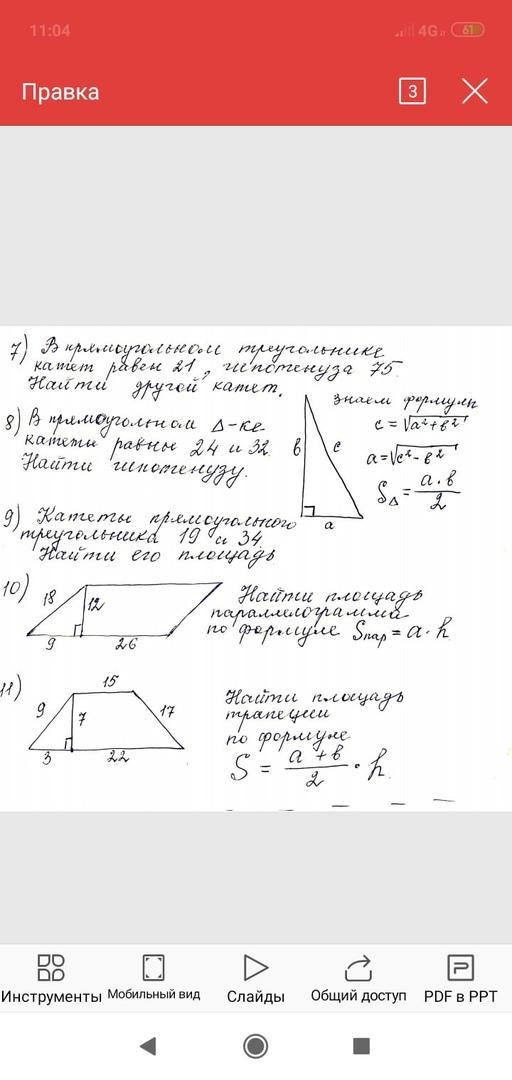 11:04
4G
61
Правка
3
7) В прямоугольном треугольнике
катет равен 21, гипотенуза 75.
Найти другой катет.
знаем формулы
c = √a²+в²
a = √c²-в²
S△ = a·в / 2
в
c
a
8) В прямоугольном △-ке
катеты равны 24 и 32.
Найти гипотенузу.
9) Катеты прямоугольного
треугольника 19 и 34.
Найти его площадь
10)
18
12
9
26
Найти площадь
параллелограмма
по формуле Sпар = a·h
11)
15
9
7
17
3
22
Найти площадь
трапеции
по формуле
S = a+в / 2 · h
Инструменты
Мобильный вид
Слайды
Общий доступ
PDF в PPT